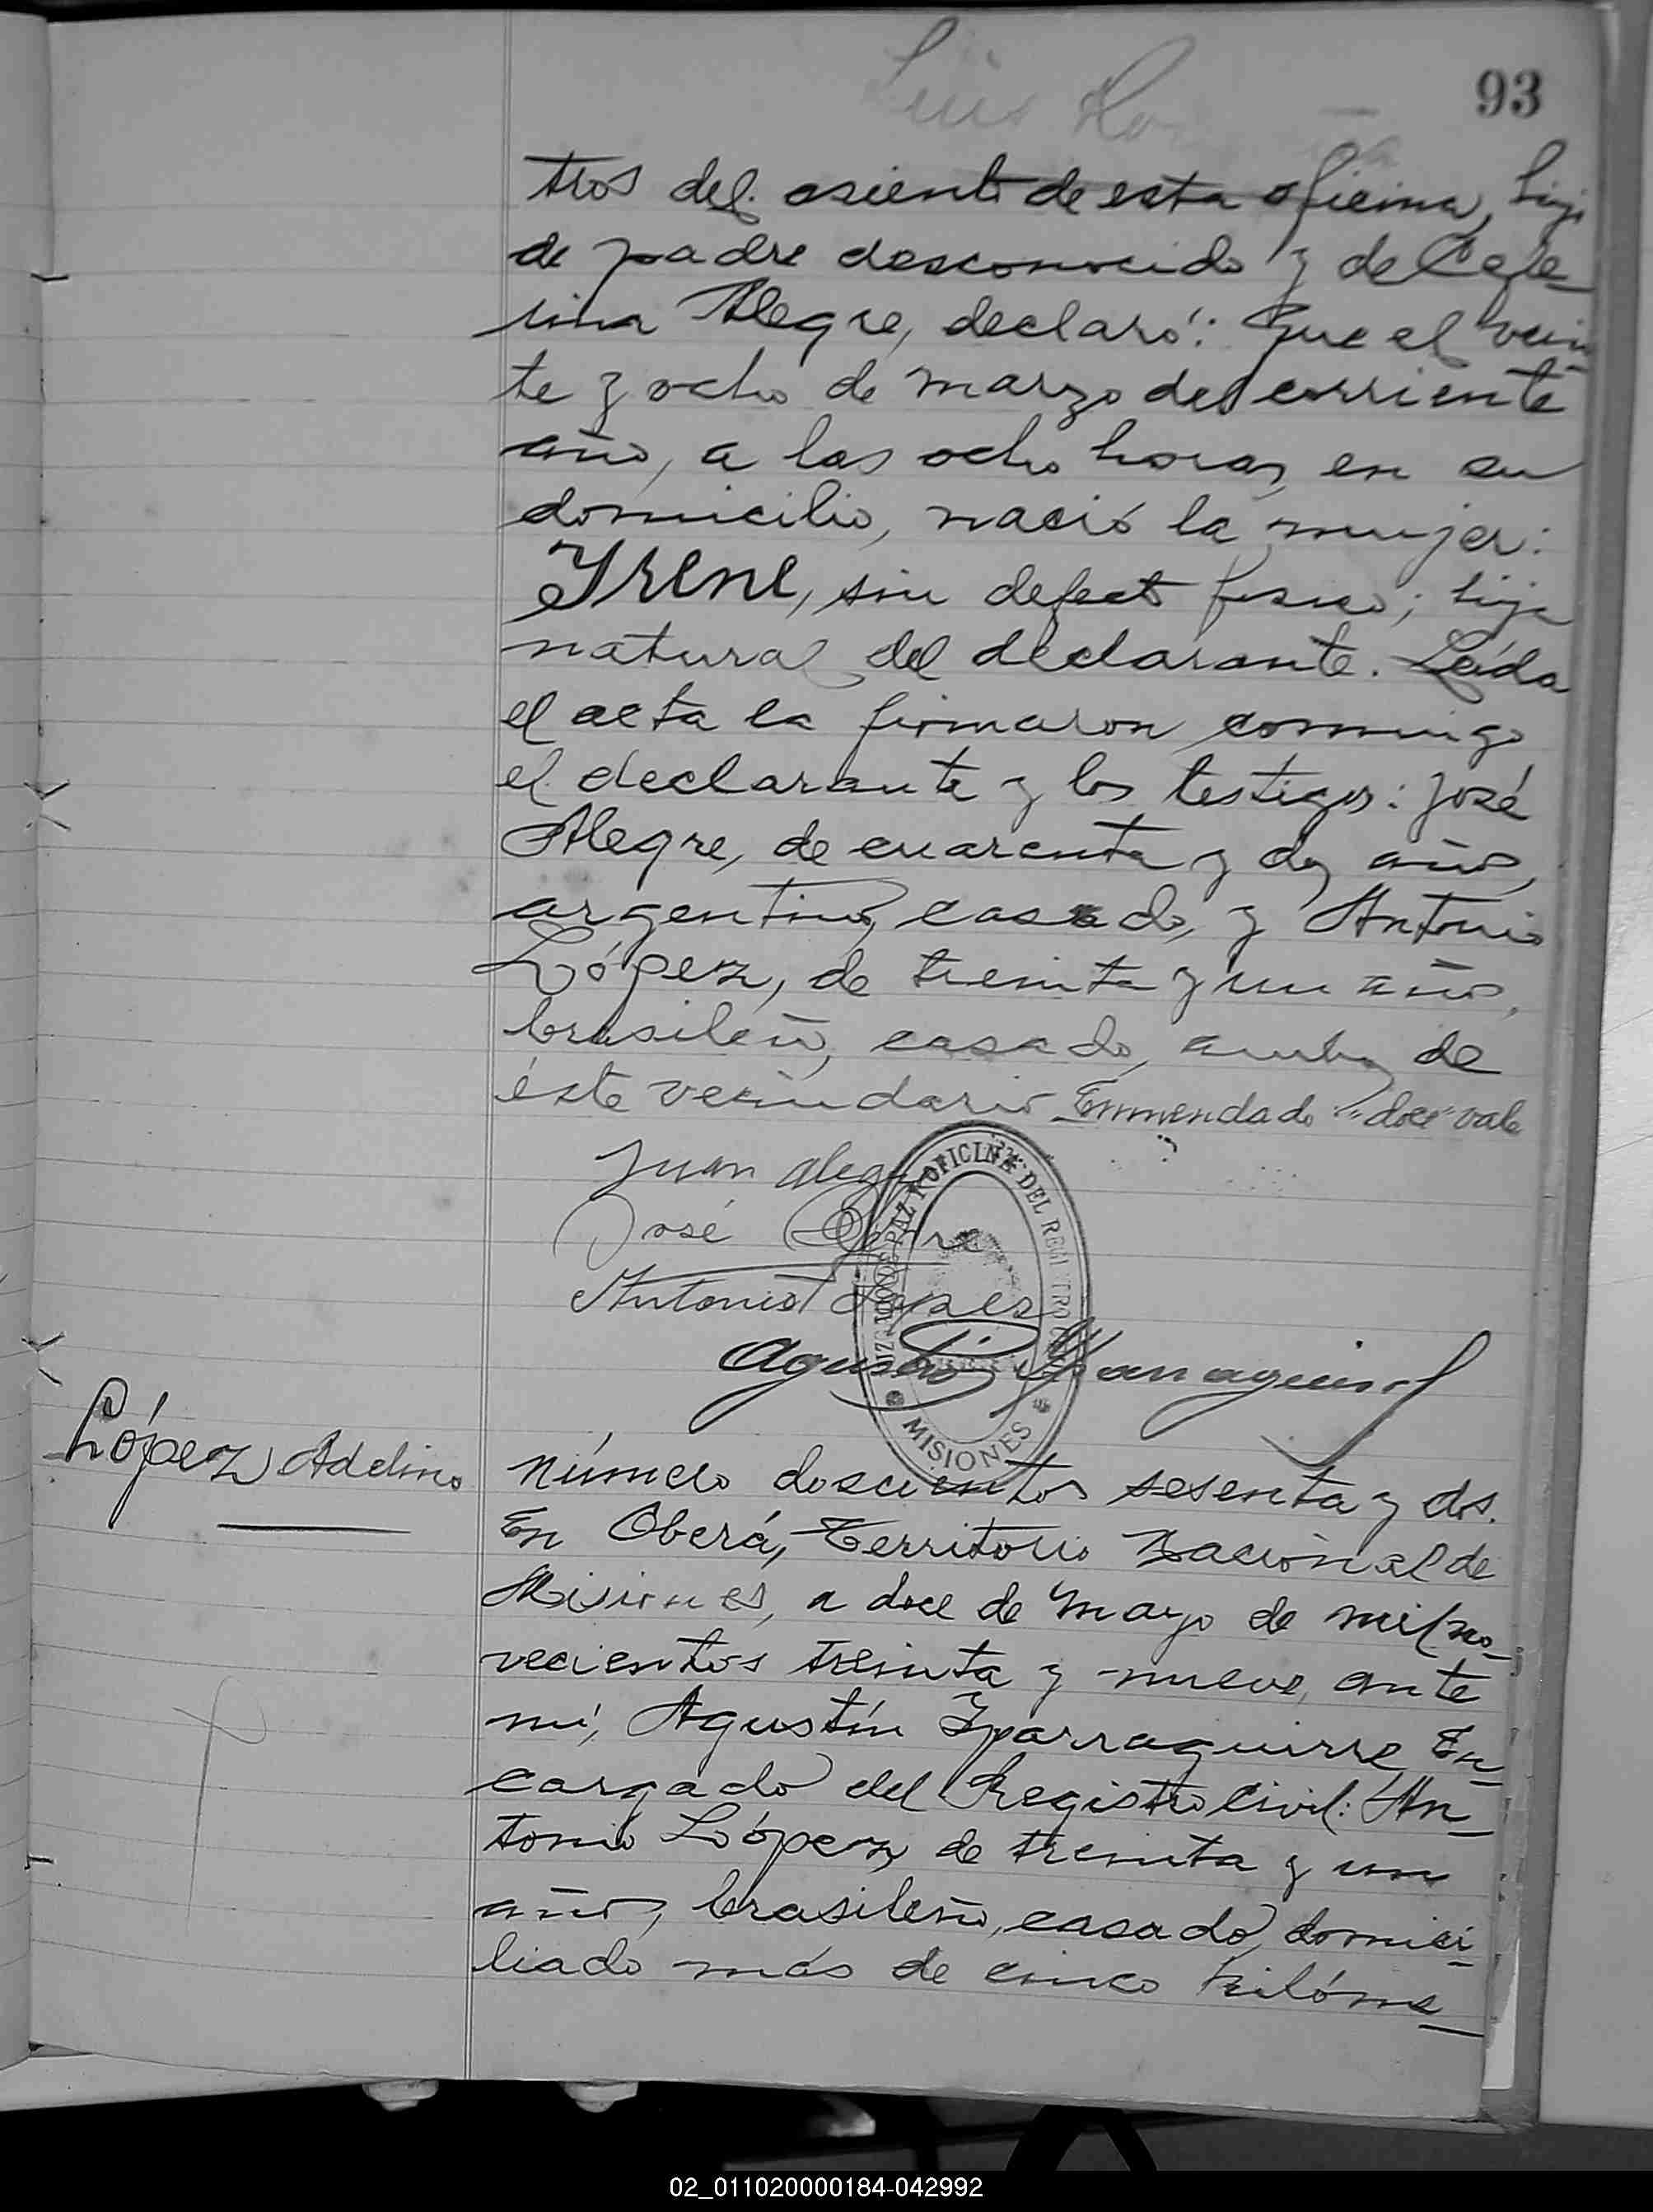 93
Luis
tros del asiento de esta oficina, hijo
de padre desconocido y de Cefe-
rina Alegre, declaró: Que el vein
te y ocho de marzo del corriente
año, a las ocho horas, en su
domicilio, nació la mujer:
Yrene, sin defecto fisico; hija
natural del declarante. Leída
el acta la firmaron conmigo
el declarante y los testigos: José
Alegre, de cuarenta y dos años,
argentino, casado, y Antonio
López, de treinta y un años,
brasileño, casado, ambos de
éste vecindario Enmendado "doce" vale
Juan Alegre
José Alegre
Antonio Lopez
Agustín Yparraguirre
OFICINA DEL REGISTRO
MISIONES
López Adelino
Número doscientos sesenta y dos.
En Oberá, Territorio Nacional de
Misiones, a doce de Mayo de mil no-
vecientos treinta y nueve, ante
mí, Agustín Yparraguirre, En-
cargado del Registro Civil: An-
tonio López, de treinta y un
años, brasileño, casado, domici-
liado más de cinco kilóme-
02_011020000184-042992